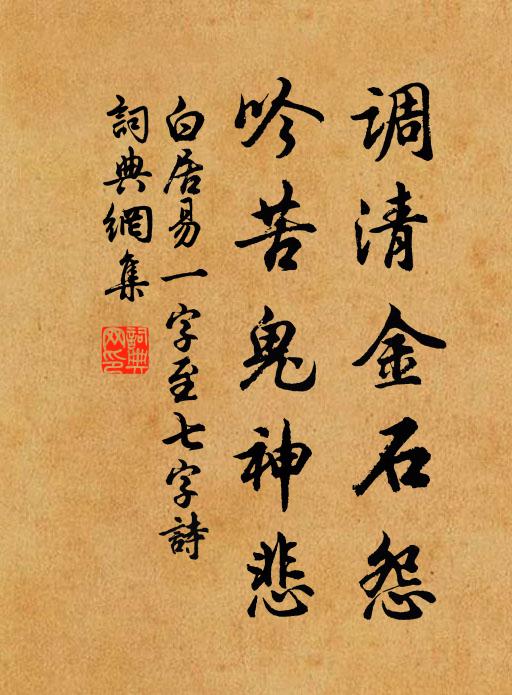 调清金石怨
吟苦鬼神悲
白居易一字至七字詩
詞典網集
詞典
网印